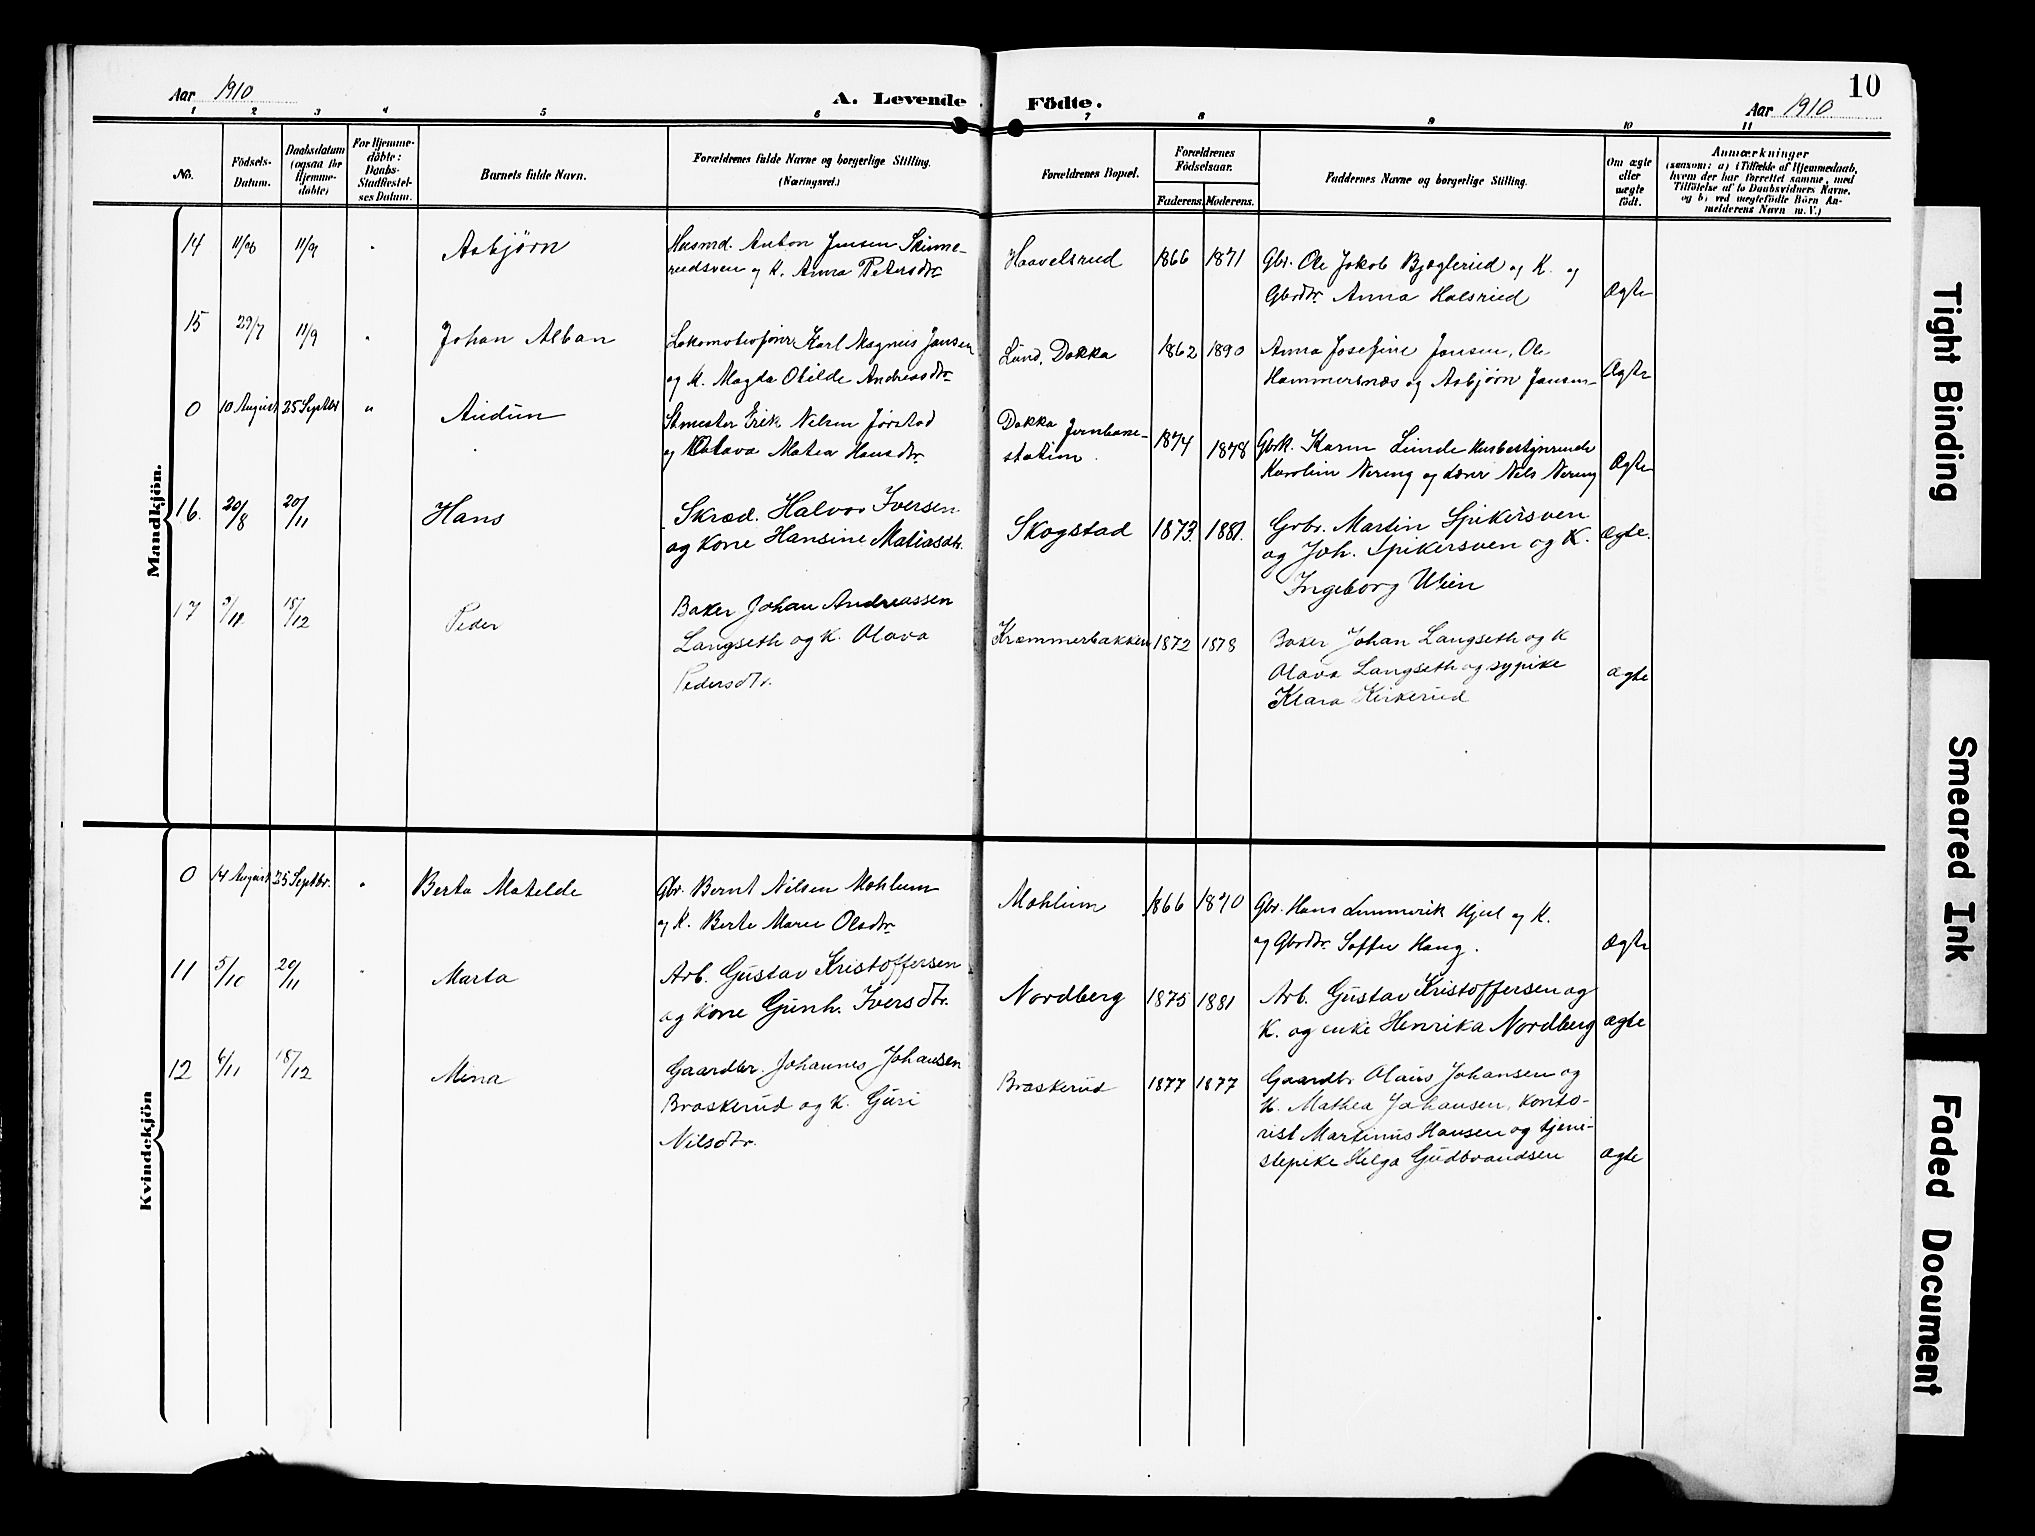 Aar 1910
A. Levende Födte.
Aar 1910
10
1 2 3 4 5 6 7 8 9 10 11
No.
Födsels-Datum.
Daabsdatum (ogsaa for Hjemme-döbte)
For Hjemme-döbte: Daabs-Stadfæstel-ses Datum.
Barnets fulde Navn.
Forældrenes fulde Navne og borgerlige Stilling. (Næringsvei.)
Forældrenes Bopæl.
Forældrenes Födselsaar.
Faderens. Moderens.
Faddernes Navne og borgerlige Stilling.
Om ægte eller uægte födt.
Anmærkninger
(saasom: a) i Tilfælde af Hjemmedaab,
hvem der har forrettet samme, med
Tilföielse af to Daabsvidners Navne,
og b) ved uægtefödte Börn An-
melderens Navn m. V.)
Mandkjön.
14 11/8 11/9 " Asbjørn
Husmd. Anton Jensen Skinne-
rudsven og K. Anna Petersdtr
Haavelsrud 1866 1871
Gbr. Ole Jakob Bjøglerud og K. og
Gbrdtr. Anna Halsrud
Ægte
15 29/7 11/9 " Johan Alban
Lokomotivfører Karl Magnus Jansen
og K. Magda Otilde Andreasdtr
Lund, Dokka 1862 1890
Anna Josefine Jansen, Ole
Hammersnæs og Asbjørn Jansen
Ægte
0 10 August 25 Septbr " Audun
Stmester Erik Nilsen Jørstad
og Olava Matea Hansdtr.
Dokka Jernbane-
station. 1874 1878
Gbrk. Karen Lunde Husbestyrende
Karolin Nering og Lærer Nils Nering
Ægte
16. 20/8 20/11 Hans
Skræd. Halvor Iversen
og Kone Hansine Matiasdtr.
Skogstad 1873. 1881.
Grbr. Martin Spikersven
og Joh. Spikersven og K.
Ingeborg Wien
Ægte.
17 3/11 18/12 Peder
Baker Johan Andreassen
Langseth og K. Olava
Pedersdtr.
Kræmmerbakken 1872 1878
Baker Johan Langseth og K
Olava Langseth og sypike
Klara Kirkerud
ægte
Kvindekjön
0 14 August 25 Septbr. " Berta Matilde
Gbr. Bernt Nilsen Mohlum
og K. Berte Marie Olsdtr
Mohlum 1866 1870
Gbr. Hans Lunnerik Hjul og K.
og Gbrdtr. Soffie Haug.
Ægte
11 5/10 20/11 " Marta
Arb. Gustav Kristoffersen
og kone Gunh. Iversdtr.
Nordberg 1875 1881
Arb. Gustav Kristoffersen og
K. og enke Henrika Nordberg
ægte
12 6/11 18/12 Mina
Gaardbr. Johannes Johansen
Braskerud og K. Guri
Nilsdtr.
Braskerud 1877 1877
Gaardbr Olaus Johansen og
K. Mathea Johansen, konto-
rist Martinus Hansen og tjene-
stepike Helga Gudbrandsen
ægte
Tight Binding
Smeared Ink
Faded Document